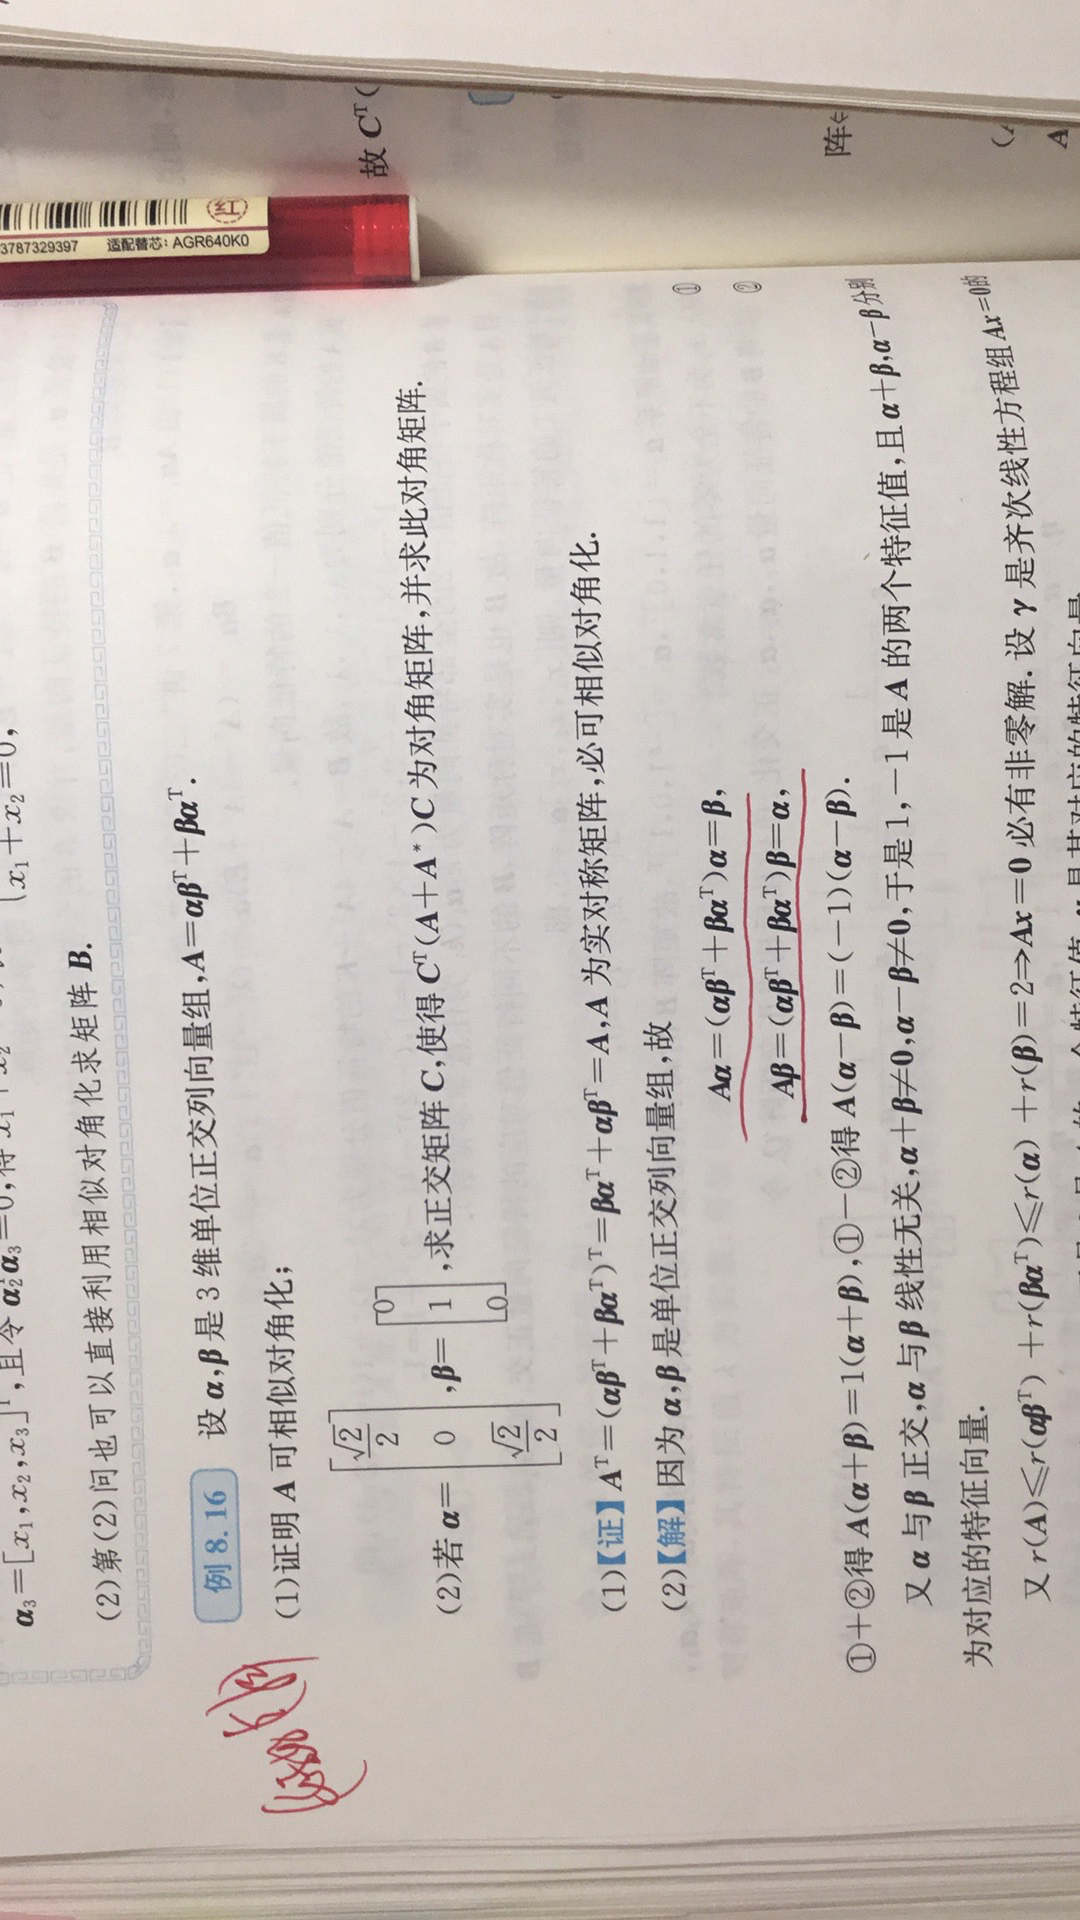 α₃=[x₁,x₂,x₃]ᵀ,且令 α₂ᵀα₃=0,得 x₁+x₂
{x₁+x₂=0,
(2)第(2)问也可以直接利用相似对角化求矩阵 B.
例 8.16 设 α,β 是 3 维单位正交列向量组,A=αβᵀ+βαᵀ.
(1)证明 A 可相似对角化;
(2)若 α=[√2/2 0 √2/2],β=[0 1 0],求正交矩阵 C,使得 Cᵀ(A+A*)C 为对角矩阵,并求此对角矩阵.
(1)【证】Aᵀ=(αβᵀ+βαᵀ)ᵀ=βαᵀ+αβᵀ=A,A 为实对称矩阵,必可相似对角化.
(2)【解】因为 α,β 是单位正交列向量组,故
Aα=(αβᵀ+βαᵀ)α=β, ①
Aβ=(αβᵀ+βαᵀ)β=α, ②
①+②得 A(α+β)=1(α+β),①-②得 A(α-β)=(-1)(α-β).
又 α 与 β 正交,α 与 β 线性无关,α+β≠0,α-β≠0,于是 1,-1 是 A 的两个特征值,且 α+β,α-β 分别
为对应的特征向量.
又 r(A)≤r(αβᵀ)+r(βαᵀ)≤r(α)+r(β)=2⇒Ax=0 必有非零解.设 γ 是齐次线性方程组 Ax=0 的
3787329397 适配替芯:AGR640K0
故 Cᵀ(
阵⇔
A